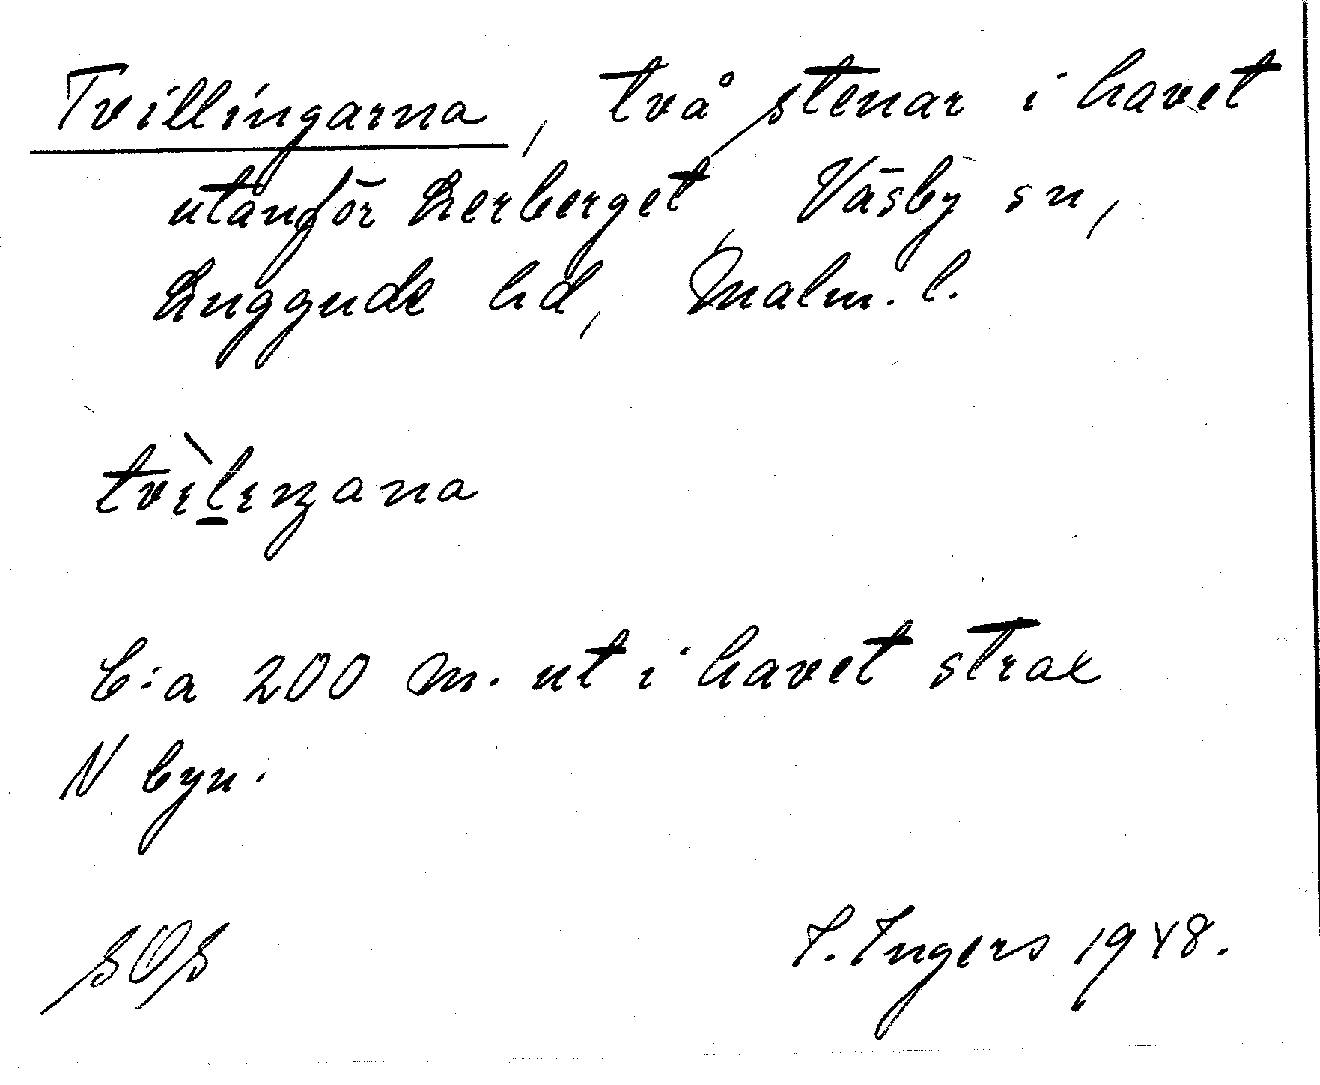 Tvillingarna, två stenar i havet
utanför Lerberget, Väsby sn,
Luggude hd, Malm. l.
C:a 200 m. ut i havet strax
N byn.
SOS
I. Ingers 1948.